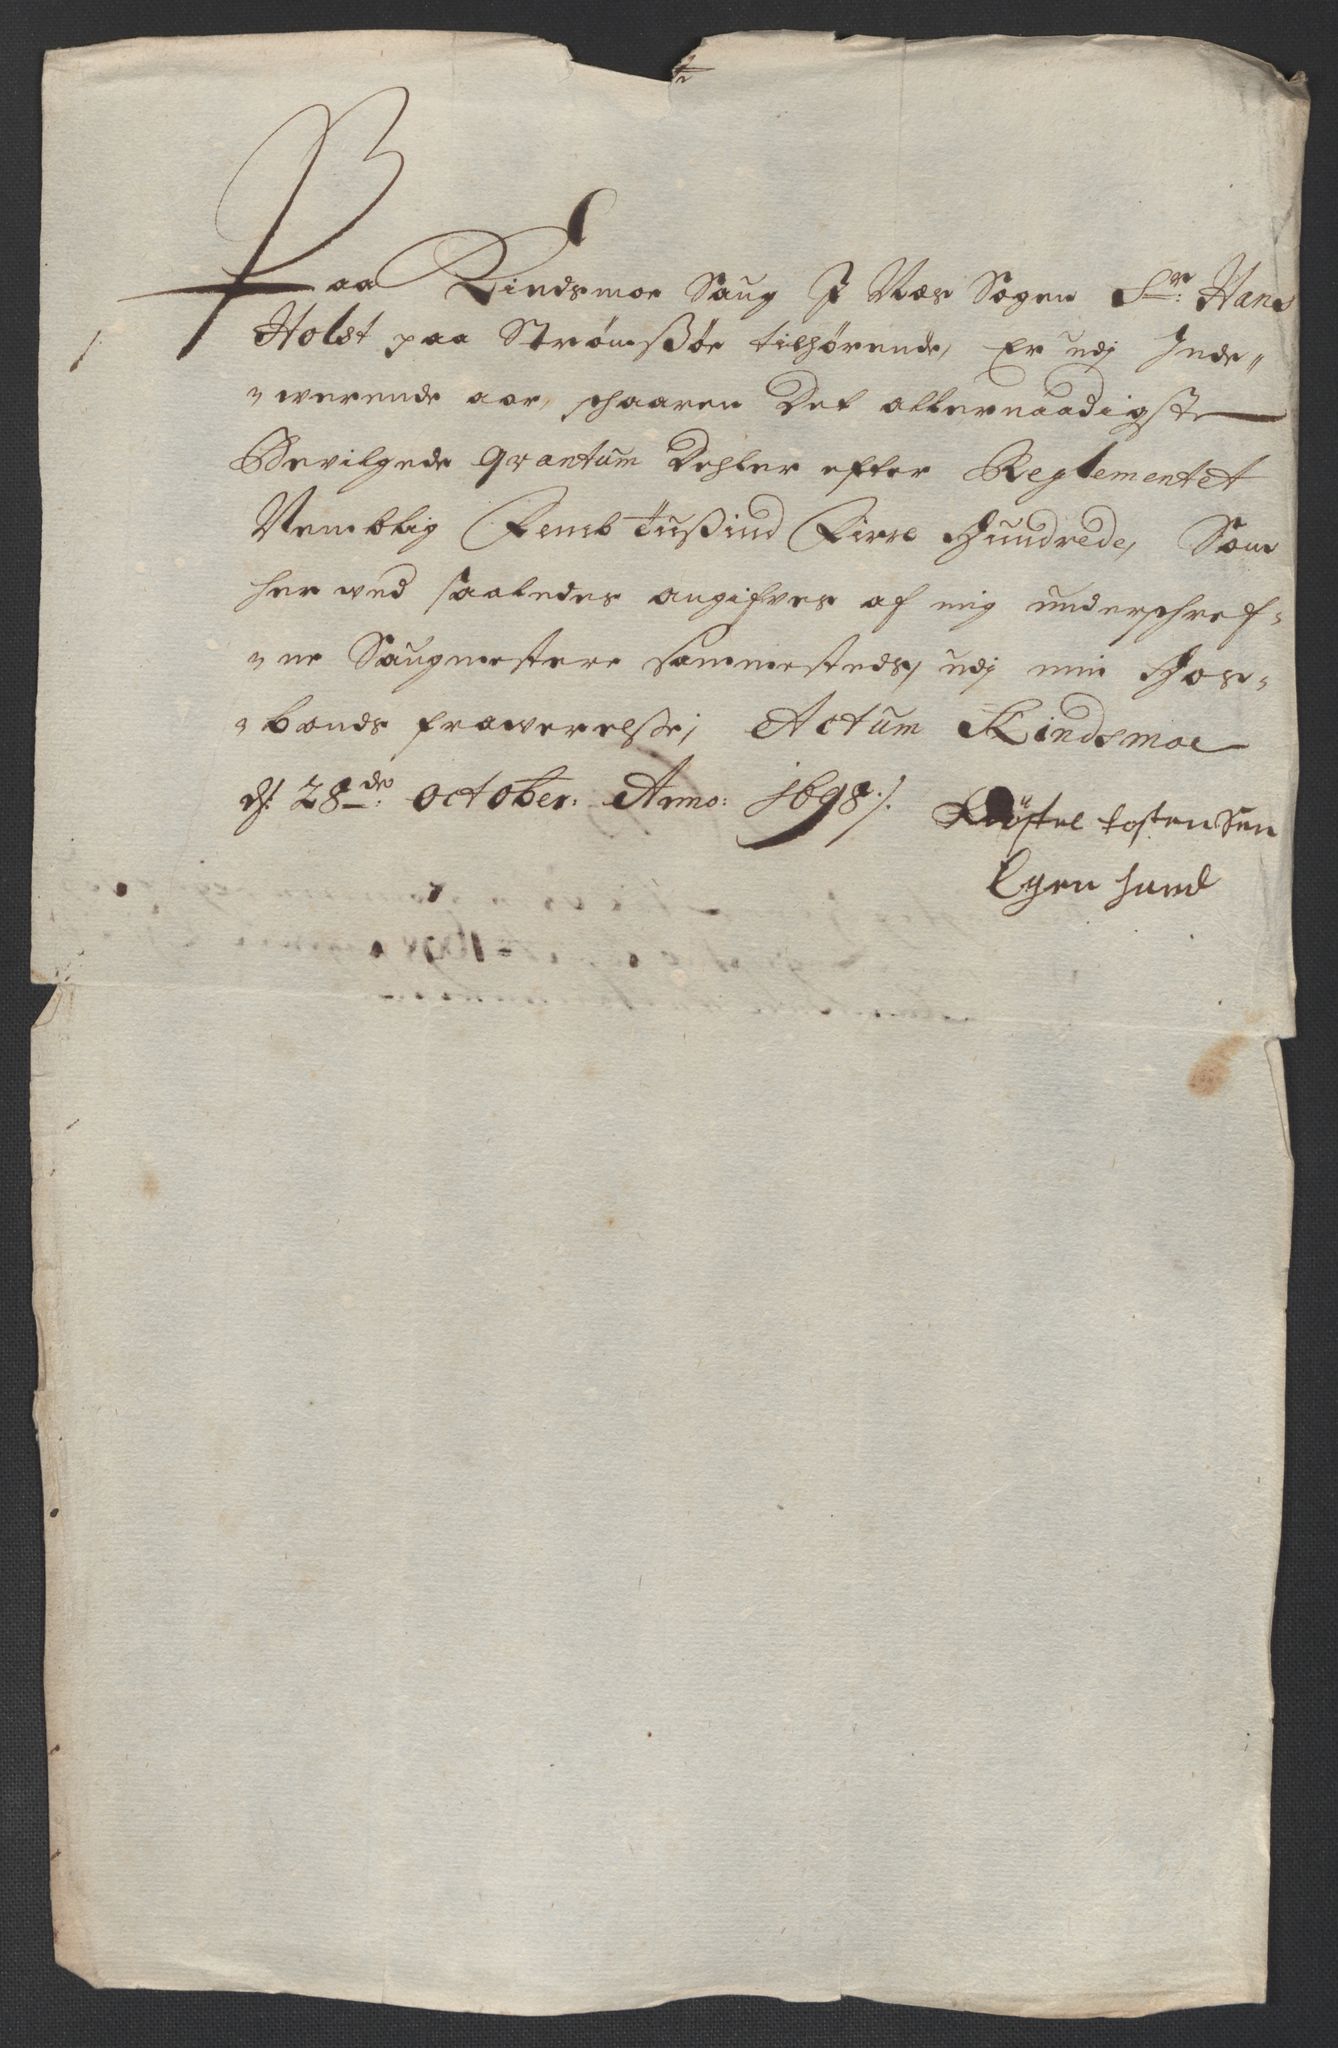 Paa Kindsmoe Saug J Næs Sogen Sr: Hans
1. Holst paa Strømsßøe tilhørende, Er udj Inde-
werende aar, schaaren Det allernaadigste
Bevilgede qvantum Dehler efter Reglementet
Nemblig Femb Tußind Firre Hundrede, Som
her wed saaledes angifves af mig underschref-
ne Saugmestere sammesteds, udj min Hos-
bonds frawerelsse, Actum Kindsmoe
d: 28de: October: Anno: 1698 ∕.
tostenSen
Egen hand